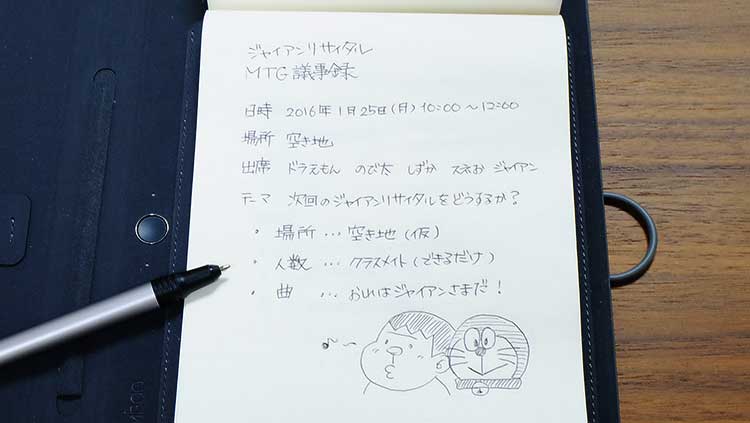 ジャイアンリサイタル
MTG議事録
日時 2016年1月25日(月) 10:00〜12:00
場所 空き地
出席 ドラえもん のび太 しずか スネお ジャイアン
テーマ 次回のジャイアンリサイタルをどうするか?
・ 場所 … 空き地(仮)
・ 人数 … クラスメイト(できるだけ)
・ 曲 … おれはジャイアンさまだ!